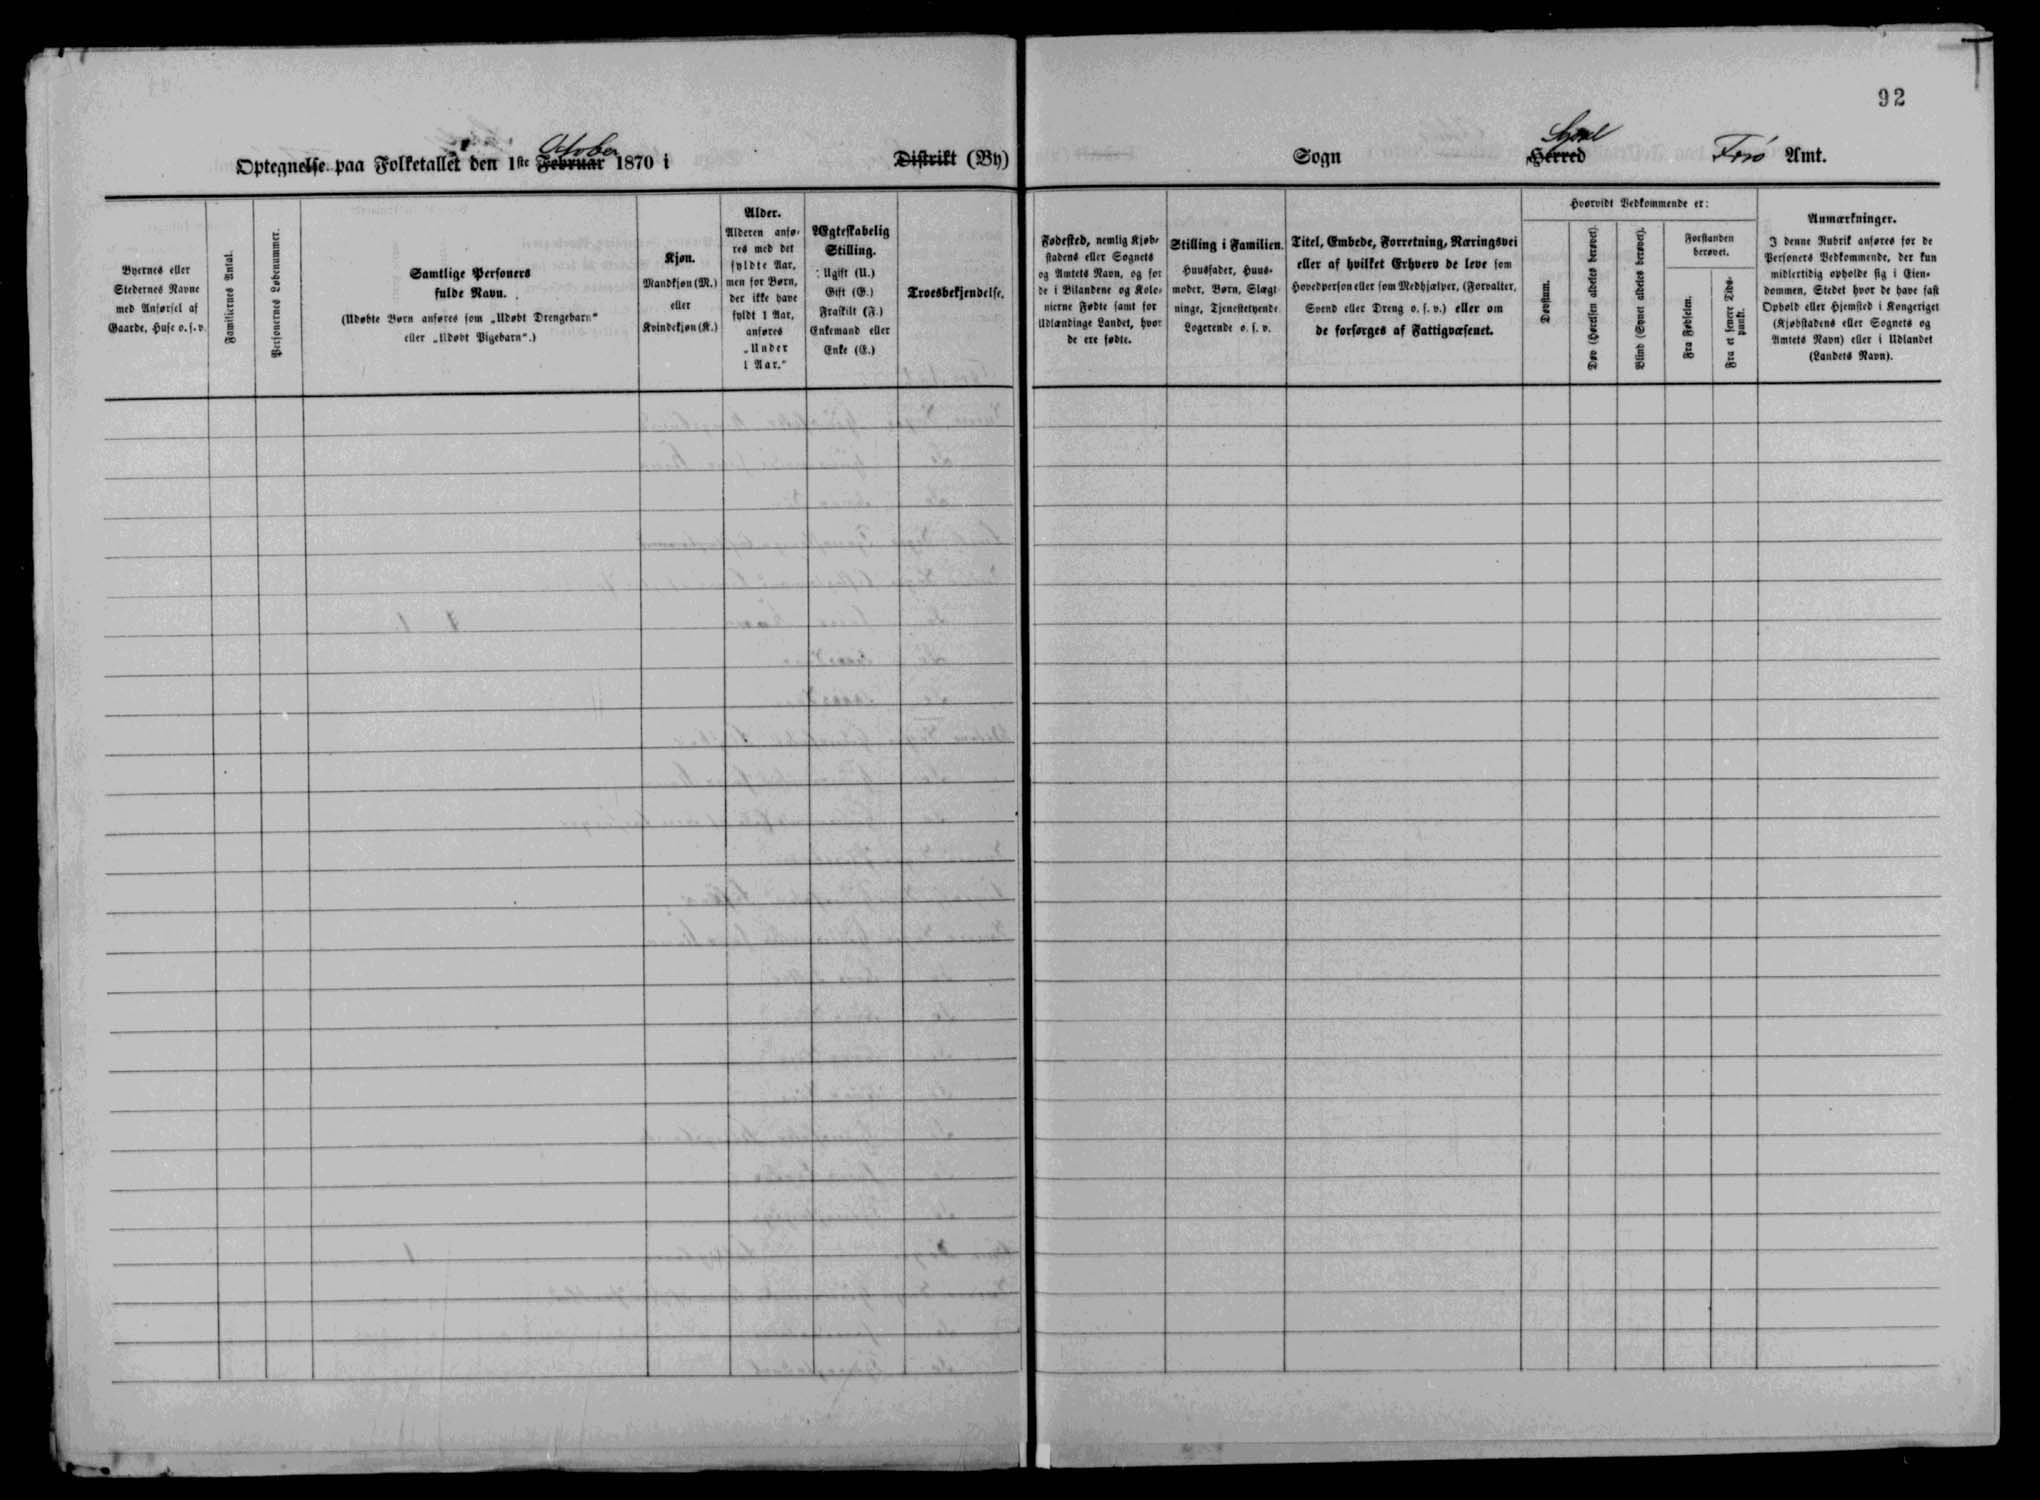 92
Optegnelse paa Folketallet den 1ste October Februar 1870 i Distrikt (By)
Sogn Syssel Herred Færø Amt.
Byernes eller
Stedernes Navne
med Anførsel af
Gaarde, Huse o. s. v.
Familiernes Antal.
Personernes Løbenummer.
Samtlige Personers
fulde Navn.
(Udøbte Børn anføres som „Udøbt Drengebarn“
eller „Udøbt Pigebarn“.)
Kjøn.
Mandkjøn (M.)
eller
Kvindekjøn (K.)
Alder.
Alderen anfø-
res med det
fyldte Aar,
men for Børn,
der ikke have
fyldt 1 Aar,
anføres
„Under
1 Aar.“
Ægteskabelig
Stilling.
Ugift (U.)
Gift (G.)
Fraskilt (F.)
Enkemand eller
Enke (E.)
Troesbekjendelse.
Fødested, nemlig Kjøb-
stadens eller Sognets
og Amtets Navn, og for
de i Bilandene og Kolo-
nierne Fødte samt for
Udlændinge Landet, hvor
de ere fødte.
Stilling i Familien.
Huusfader, Huus-
moder, Børn, Slægt-
ninge, Tjenestetyende,
Logerende o. s. v.
Titel, Embede, Forretning, Næringsvei
eller af hvilket Erhverv de leve som
Hovedperson eller som Medhjælper, (Forvalter,
Svend eller Dreng o. s. v.) eller om
de forsørges af Fattigvæsenet.
Hvorvidt Vedkommende er:
Døvstum.
Døv (Hørelsen aldeles berøvet).
Blind (Synet aldeles berøvet).
Forstanden
berøvet.
Fra Fødselen.
Fra et senere Tids-
punkt.
Anmærkninger.
I denne Rubrik anføres for de
Personers Vedkommende, der kun
midlertidig opholde sig i Eien-
dommen, Stedet hvor de have fast
Ophold eller Hjemsted i Kongeriget
(Kjøbstadens eller Sognets og
Amtets Navn) eller i Udlandet
(Landets Navn).